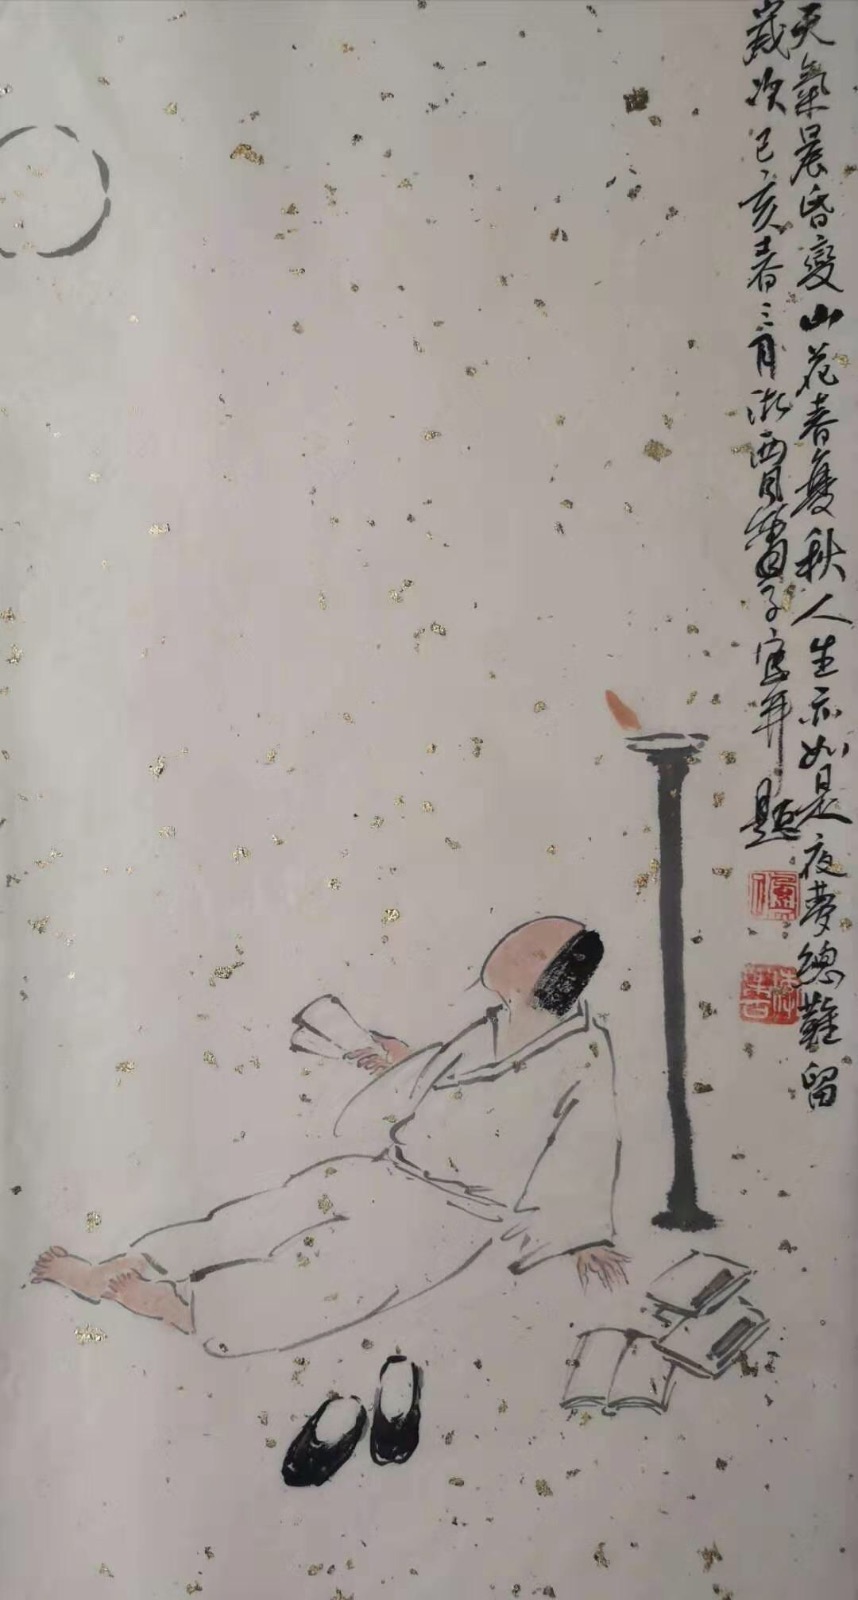 天氣晨昏變山花春夏秋人生亦如是夜夢總難留
歲次己亥春三月浙西
題